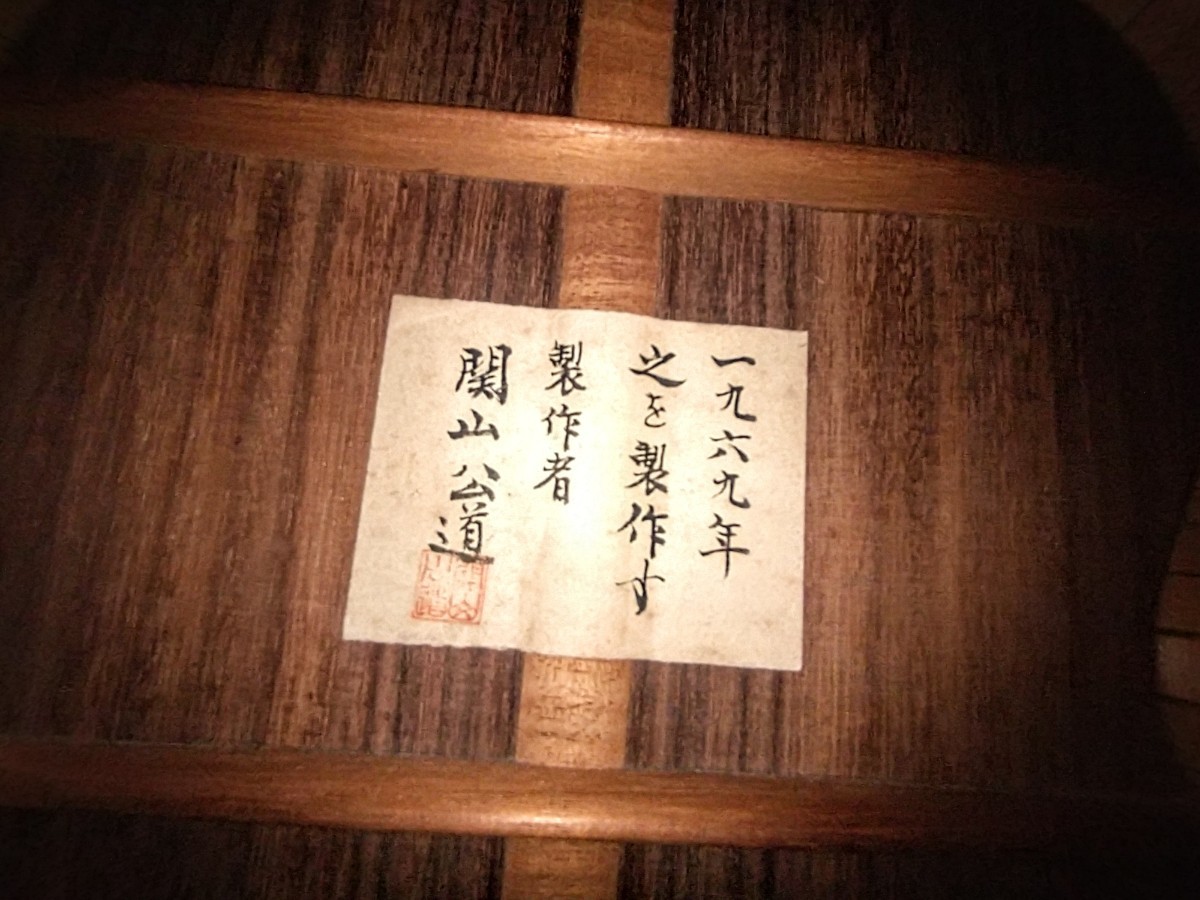 一九六九年
之を製作す
製作者
関山公道